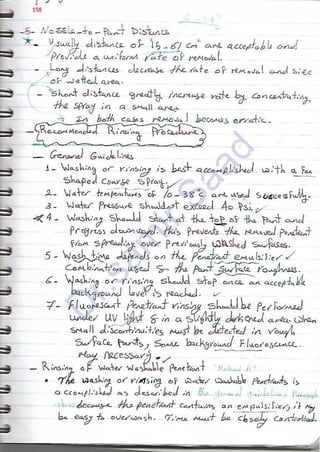 158
-5- Nozzle-to-Part Distance
* Usually distance of 15-61 cm are acceptable and
provide a uniform rate of removal.
- Long distances decrease the rate of removal and size
of wetted area.
- Short distance greatly increase rate by concentrating
the spray in a small area
- In both cases removal becomes erratic.
Recommended Rinsing Procedure
- General Guidelines
1- Washing or rinsing is best accomplished with a Fan
Shaped Coarse Spray.
2- Water temperatures of 10-38°C are used successfully.
3- Water Pressure shouldnot exceed 40 Psi.
*4- Washing Should start at the top of the Part and
Progress downward. this Prevents the removed Penetrant
From spreading over previously washed surfaces.
5- Wash time depends on the Penetrant emulsifier
Combination used & the Part Surface roughness.
6- Washing or rinsing Should stop once an acceptable
background level is reached.
7- Fluorescent Penetrant rinsing should be Performed
under UV light & in a slightly darkened area when
small discontinuities must be detected in rough
surface Parts, Some background Fluorescence
May necessary.
- Rinsing of Water Washable Penetrant "Method A"
• The washing or rinsing of water washable Penetrants is
accomplished as described in the general guidelines
because the penetrant contains an emulsifier, it may
be easy to overwash. Time must be closely controlled.